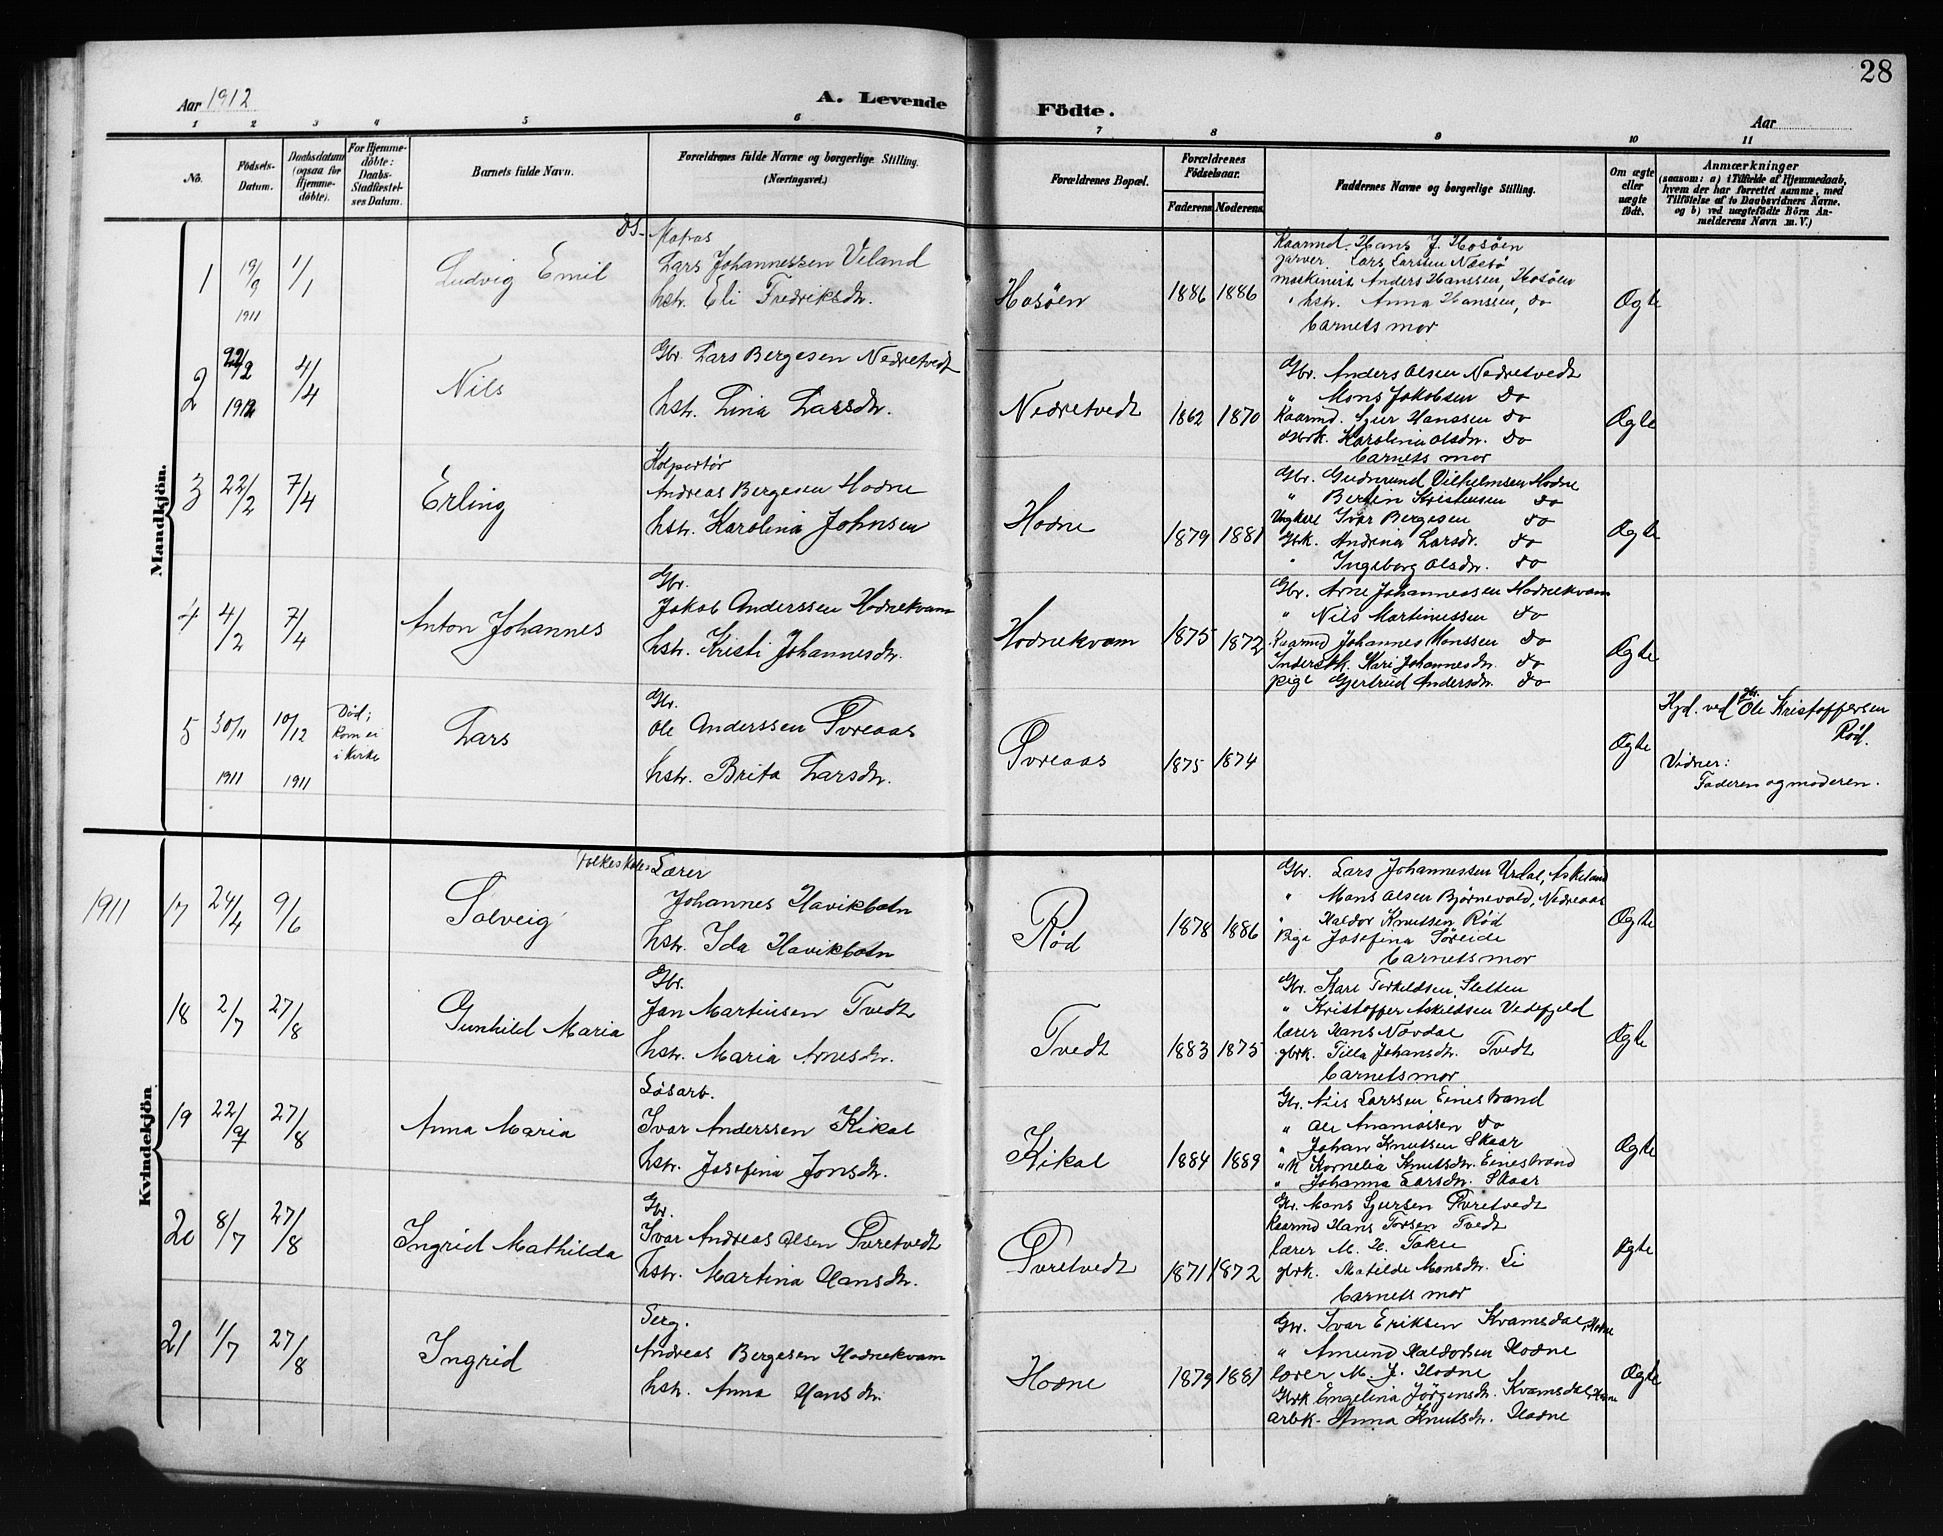 28
Aar 1912
A. Levende Födte.
Aar
1 2 3 4 5 6 7 8 9 10 11
No.
Födsels-Datum.
Daabsdatum (ogsaa for Hjemmedøbte).
For Hjemmedøbte: Daabs-Stadfæstelses Datum.
Barnets fulde Navn.
Forældrenes fulde Navne og borgerlige Stilling. (Næringsvei.)
Forældrenes Bopæl.
Forældrenes Födselsaar.
Faderens Moderens
Faddernes Navne og borgerlige Stilling.
Om ægte eller uægte født.
Anmærkninger
(saasom: a) i Tilfælde af Hjemmedaab,
hvem der har forrettet samme, med
Tilføielse af to Daabsvidners Navne.
og b) ved uægtefødte Börn An-
melderens Navn m. V.)
Mandkjön.
1 19/9 1911 1/1
Ludvig Emil
Ds. Matros
Lars Johannessen Veland
hstr. Eli Fredriksdr.
Hosöen
1886 1886
Kaarmd. Hans J. Hosöen
garver Lars Larssen Næstö
maskinist Anders Hanssen, Hosöen
hstr. Anna Hanssen, do
barnets mor
Ægte
2 22/2 1912 4/4
Nils
Gbr. Lars Bergesen Nedretvedt
hstr. Lina Larsdr.
Nedretvedt
1862 1870
Gbr. Anders Olsen Nedretvedt
" Mons Jakobsen do
Kaarmd. Sjur Hanssen do
Gbrk. Karolina Olsdr. do
barnets mor
Ægte
3 22/2 7/4
Erling
Kolportør
Andreas Bergesen Hodne
hstr. Karolina Johnsen
Hodne
1879 1881
Gbr. Gudmund Vilhelmsen Hodne
" Bertin Kristensen do
Ungkarl Ivar Bergesen do
Gbrk. Andrina Larsdr. do
" Ingeborg Olsdr. do
Ægte
4 4/2 7/4
Anton Johannes
Gbr.
Jakob Anderssen Hodnekvam
hstr. Kristi Johannesdr.
Hodnekvam
1875 1872
Gbr. Arne Johannessen Hodnekvam
" Nils Martinussen do
Kaarmd Johannes Monssen do
Inderstk. Kari Johannesdr. do
pige Gjertrud Andersdr. do
Ægte
5 30/11 1911 10/12 1911
Død;
kom ei
i kirke
Lars
Gbr.
Ole Anderssen Øvreaas
hstr. Brita Larsdr.
Øvreaas
1875 1874
Ægte
Hjd. ved gbr. Ole Kristoffersen
Rød.
Vidner:
Faderen og moderen.
Kvindekjön
1911 17 24/4 9/6
Solveig
Folkeskole Lærer
Johannes Havikbotn
hstr. Ida Havikbotn
Rød
1878 1886
Gbr. Lars Johannessen Urdal, Askeland
" Mons Olsen Björnevold, Nedreaas
" Haldor Knutsen Rød
Pige Josefina Søreide
barnets mor
Ægte
18 2/7 27/8
Gunhild Maria
Gbr.
Jan Martinsen Tvedt
hstr. Maria Arnesdr.
Tvedt
1883 1875
Gbr. Kare Torkildsen Sletten
" Kristoffer Askildsen Vedefjeld
lærer Hans Nøvdal
gbrk. Tilla Johansdr. Tvedt
barnets mor
Ægte
19 22/7 27/8
Anna Maria
Løsarb.
Ivar Anderssen Kikal
hstr. Josefina Jonsdr.
Kikal
1884 1889
Gbr. Nils Larssen Einestrand
" Ole Ananiassen do
" Johan Knutsen Skaar
"k Kornelia Knutsdr. Einestrand
" Johanna Larsdr. Skaar
Ægte
20 8/7 27/8
Ingrid Mathilda
Gbr.
Ivar Andreas Olsen Øvretvedt
hstr. Martina Hansdr.
Øvretvedt
1871 1872
Gbr. Mons Sjursen Øvretvedt
Kaarmd Hans Torsen Tvedt
lærer M. H. Takle
gbrk. Matilde Monsdr. Li
barnets mor
Ægte
21 1/7 27/8
Ingrid
Serg.
Andreas Bergesen Hodnekvam
hstr. Anna Hansdr.
Hodne
1879 1881
Gbr. Ivar Eriksen Kvamsdal, Hodne
" Amund Haldorsen Hodne
lærer M. J. Hodne
Gbrk Engelina Jörgensdr. Kvamsdal,
arbk. Anna Knutsdr. Hodne
Ægte